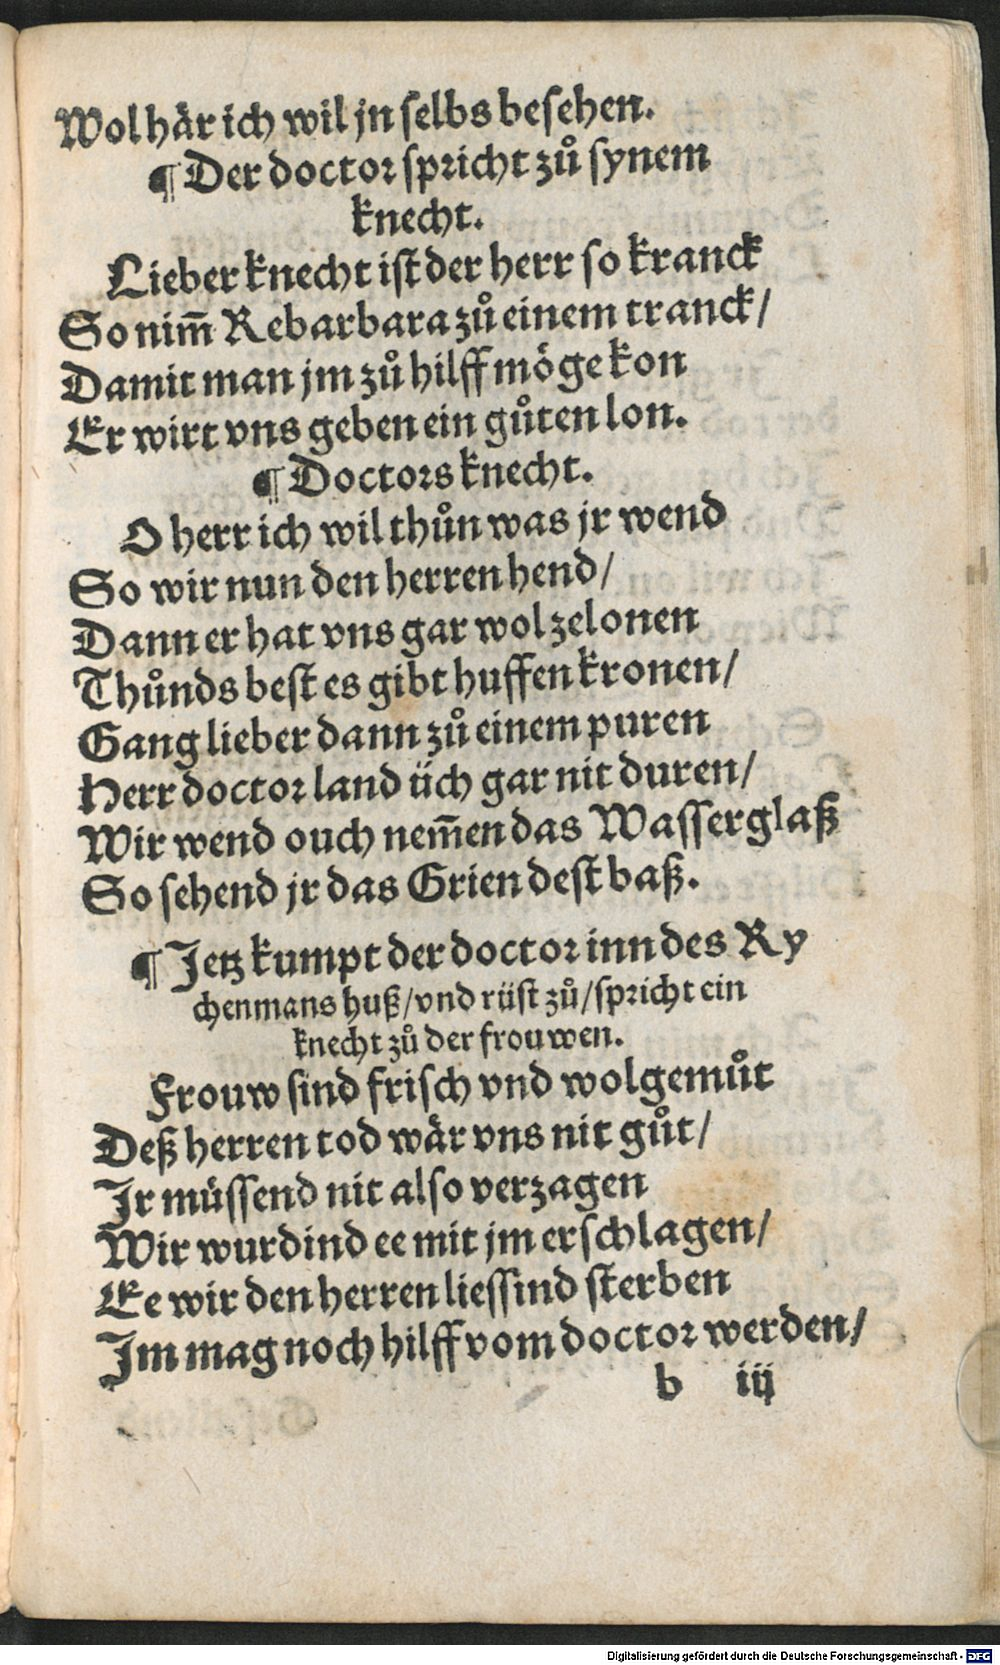 Wol här ich wil jn selbs besehen.
¶ Der doctor spricht zů synem
knecht.
Lieber knecht ist der herr so kranck
So nim̃ Rebarbara zů einem tranck/
Damit man jm zů hilff möge kon
Er wirt vns geben ein gůten lon.
¶ Doctors knecht.
O herr ich wil thůn was jr wend
So wir nun den herren hend/
Dann er hat vns gar wol zelonen
Thůnds best es gibt huffen kronen/
Gang lieber dann zů einem puren
Herr doctor land üch gar nit duren/
Wir wend ouch nem̃en das Wasserglaß
So sehend jr das Grien dest baß.
¶ Jetz kumpt der doctor inn des Ry
chenmans huß/vnd rüst zů/spricht ein
knecht zů der frouwen.
Frouw sind frisch vnd wolgemůt
Deß herren tod wär vns nit gůt/
Jr müssend nit also verzagen
Wir wurdind ee mit jm erschlagen/
Ee wir den herren liessind sterben
Jm mag noch hilff vom doctor werden/
b iij
Digitalisierung gefördert durch die Deutsche Forschungsgemeinschaft - DFG